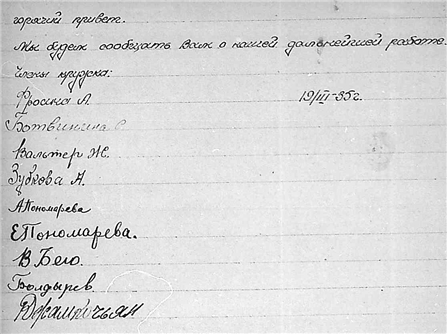 горячий привет.
Мы будем сообщать Вам о нашей дальнейшей работе.
Члены кружка:
Фронина Л. 19/III-35г.
Ботвинкина С.
Вальтер Ж.
Зубкова А.
А Пономарева
Е Пономарева.
В. Бею.
Болдырев.